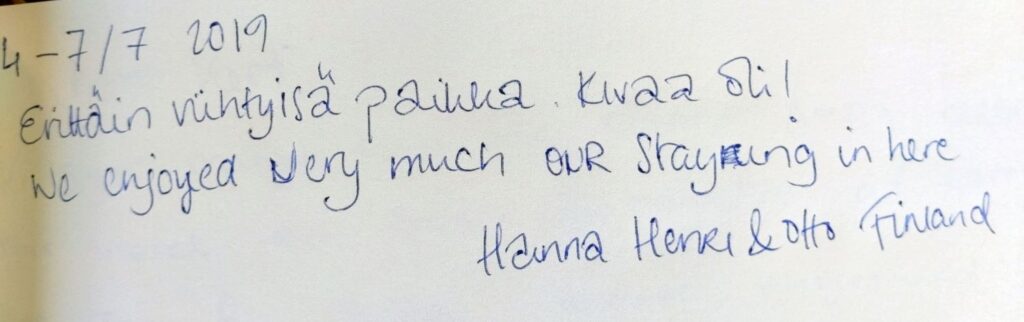 4-7/7 2019
Erittäin viihtyisä paikka. Kivaa oli!
We enjoyed very much OUR staying in here
Hanna Henri & Otto Finland